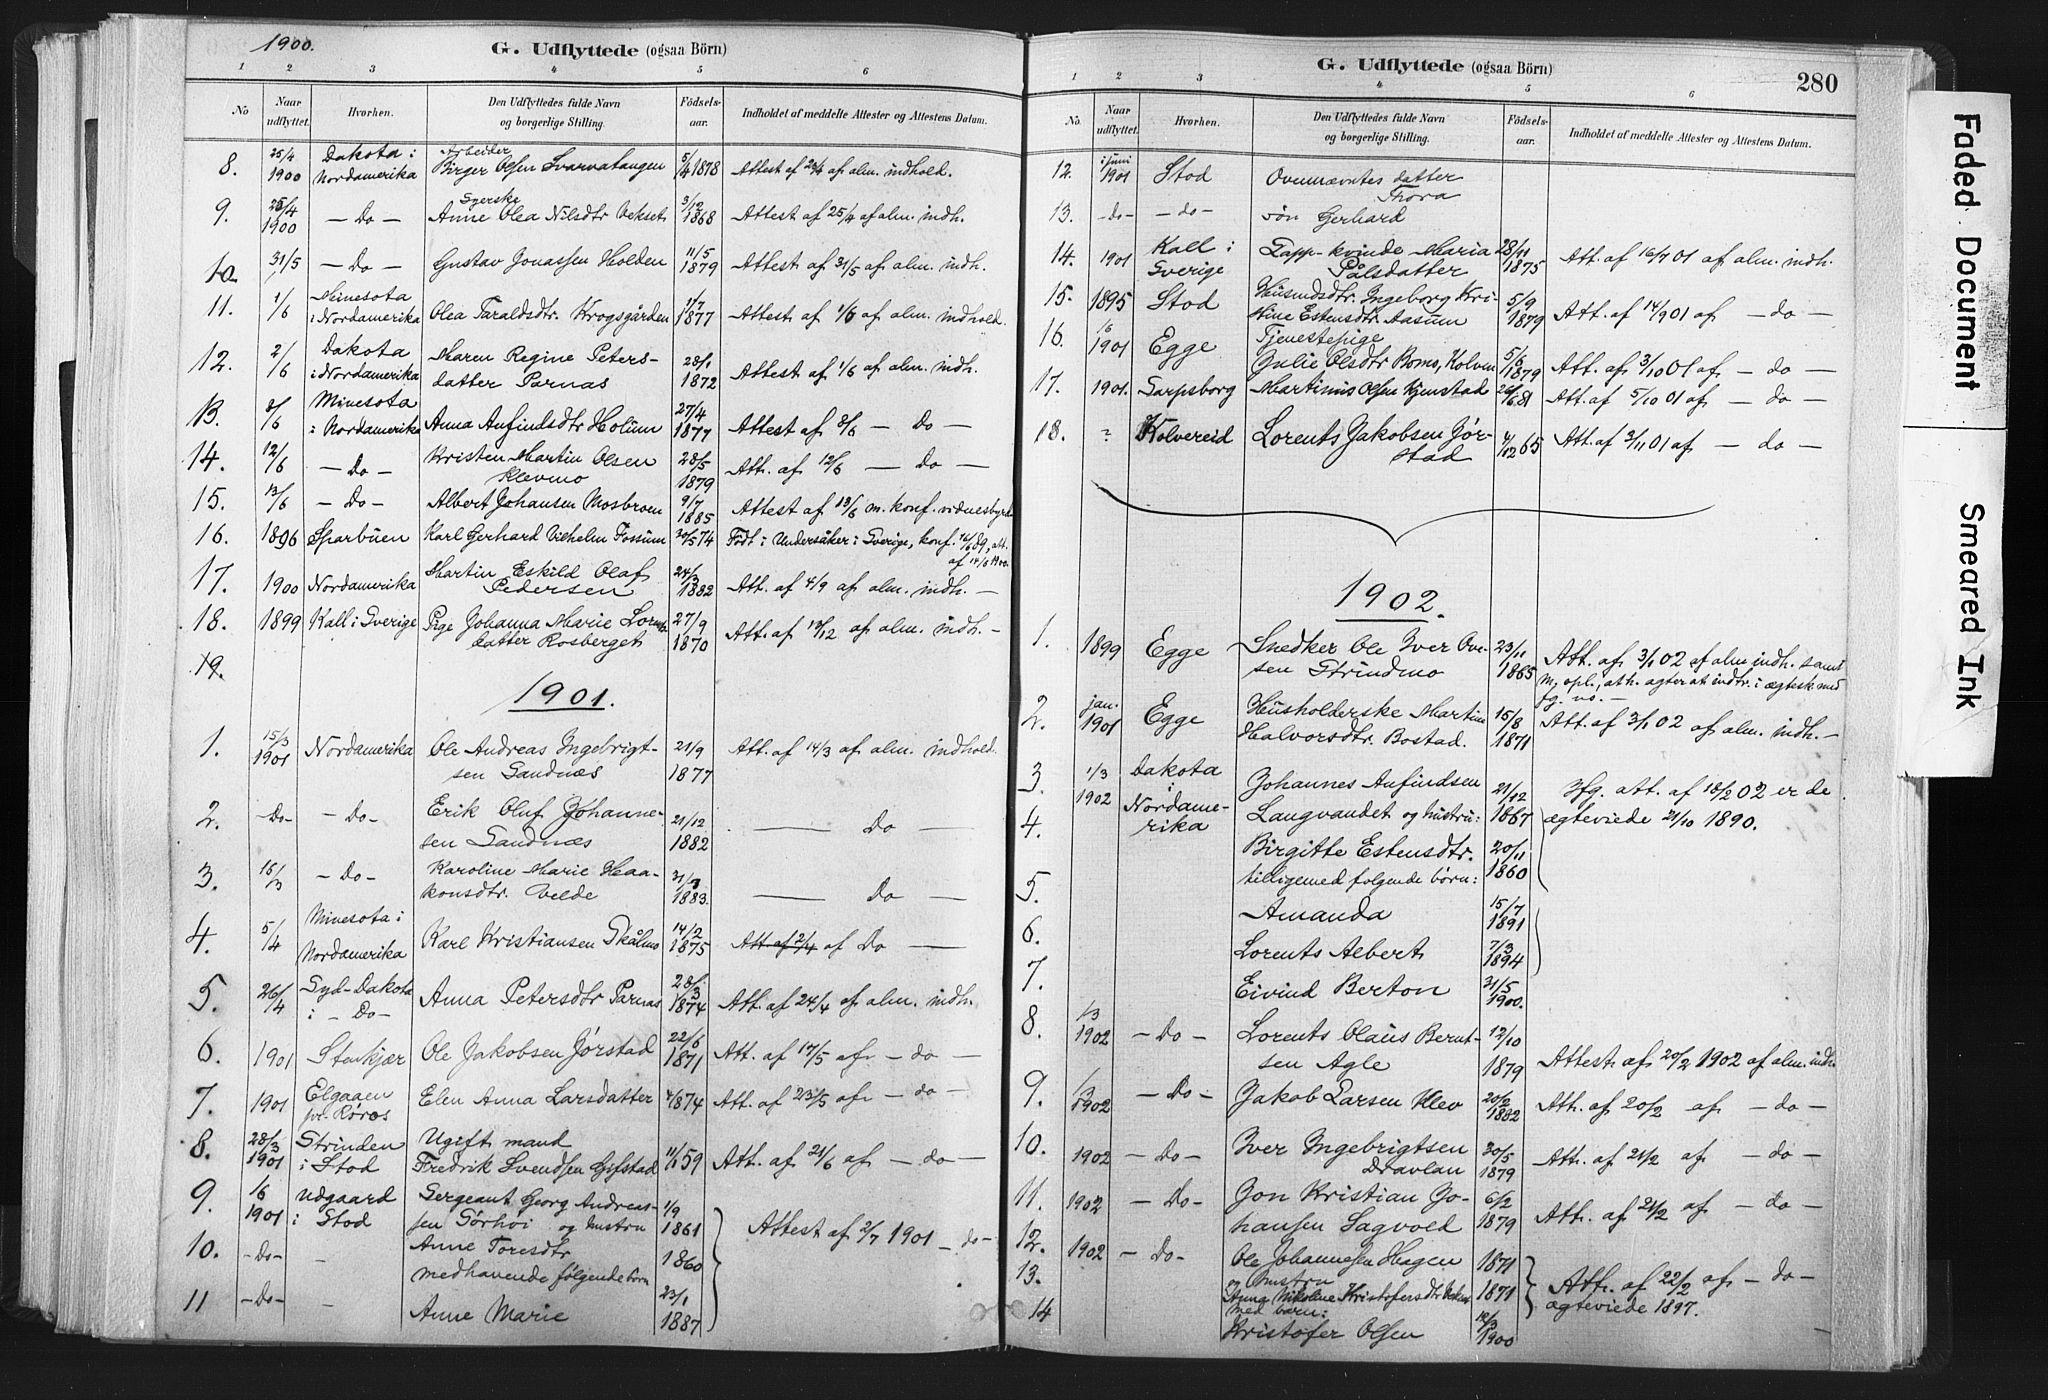 1900.
G. Udflyttede (ogsaa Börn)
1 2 3 4 5 6
No
Naar udflyttet.
Hvorhen.
Den Udflyttedes fulde Navn og borgerlige Stilling.
Födsels-aar.
Indholdet af meddelte Attester og Attestens Datum.
8. 25/4 1900 Dakota i Nordamerika Arbeider Birger Olsen Svarvatangen 5/4 1878 Attest af 20/4 af alm. indhold.
9. 25/4 1900 — Do — Syerske Anne Olea Nilsdtr Vekset 3/12 1868 Attest af 25/4 af alm. indh.
10 31/5 — Do — Gustav Jonassen Holden 11/5 1879 Attest af 31/5 af alm. indh.
11. 1/6 Minesota i Nordamerika Olea Taraldsdtr. Krogsgården 1/7 1877 Attest af 1/6 af alm. indhold.
12. 2/6 Dakota i Nordamerika Maren Regine Peters-
datter Parnas 28/1 1872 Attest af 1/6 af alm. indh.
13. 8/6 Minesota i Nordamerika Anna Anfindsdtr Holüm 27/4 1877 Attest af 8/6 — Do —
14. 12/6 — Do — Kristen Martin Olsen
Klevmo 28/5 1879 Att. af 12/6 — Do —
15. 13/6 — Do — Albert Johansen Mosbroen 9/7 1885 Attest af 13/6 m. konf. vidnesbyrd
16. 1896 Sparbüen Karl Gerhard Vilhelm Fossüm 20/5 74 Födt i Undersåker i Sverige, konf. 16/6 89, att.
af 14/6 1900.
17. 1900 Nordamerika Martin Eskild Olaf
Pedersen 24/3 1882 Att. af 4/9 af alm. indh. —
18. 1899 Kall i Sverige Pige Johanna Marie Lorents-
datter Rosberget 27/9 1870 Att. af 13/12 af alm. indh. —
19.
1901.
1. 15/3 1901 Nordamerika Ole Andreas Ingebrigt-
sen Sandnæs 21/9 1877 Att. af 14/3 af alm. indhold.
2. —Do— —Do— Erik Oluf Johanne-
sen Sandnæs 21/12 1882 — Do —
3. 15/3 —Do— Karoline Marie Haa-
konsdtr. Velde 31/7 1883. — Do —
4. 5/4 Minesota i Nordamerika Karl Kristiansen Skålmo 14/2 1875 Att af 2/4 af Do —
5. 26/4 Syd-Dakota i — Do— Anna Petersdtr Parnas 28/3 1874 Att. af 24/4 af alm. indh.
6. 1901 Stenkjær Ole Jakobsen Jørstad 22/6 1871 Att. af 17/5 af — do —
7. 1901 Elgaaen pr. Röros Elen Anna Larsdatter 4/8 74 Att. af 23/5 af — do —
8. 28/3 1901 Strinden i Stod Ugift mand
Fredrik Svendsen Gifstad 11/1 59 Att. af 21/6 af — do —
9. 1/6 1901 udgaard i Stod Sergeant Georg Andreas-
sen Sørhoi og hustru 1/9 1861 Attest af 2/7 1901 — do—
10. —Do— — Anne Toresdtr 1860
medhavende følgende børn
11 —Do— — Anne Marie 23/1 1887
G. Udflyttede (ogsaa Börn)
280
1 2 3 4 5 6
No.
Naar udflyttet.
Hvorhen.
Den Udflyttedes fulde Navn og borgerlige Stilling.
Födsels-aar.
Indholdet af meddelte Attester og Attestens Datum.
12. i juni 1901 Stod Ovennævntes datter
Thora
13. —do— —do— søn Gerhard
14. 1901 Kall i Sverige Lapp-kvinde Maria
Pålsdatter 28/11 1875 Att. af 16/7 01 af alm. indh.
15. 1895 Stod Husmdsdtr. Ingeborg Kri-
stine Estensdtr. Aasum 5/9 1879 Att. af 14/9 01 af — do —
16. 1/6 1901 Egge Tjenestepige
Julie Olsdtr Boms, Kolven 5/6 1879 Att. af 3/10 01 af — do —
17. 1901. Sarpsborg Martinius Olsen Kjenstad 26/6 81 Att. af 5/10 01 af — do —
18. ? Kolvereid Lorents Jakobsen Jør-
stad 4/12 65 Att. af 3/11 01 af — do —
1902.
1. 1899 Egge Snedker Ole Iver Ove-
sen Strindmo 23/11 1865 Att. af 3/1 02 af alm. indh. samt
m. opl., at h. agter at indtr. i ægtesk. med
fg. no. —
2. jan. 1901 Egge Husholderske Martine
Halvorsdtr. Bostad. 15/8 1871 Att. af 3/1 02 af alm. indh. —
3. 1/3 1902 Dakota i Nordame-rika Johannes Anfindsen
Langvandet og hustru: 21/12 1867 Ifg. att. af 18/2 02 er de
ægteviede 21/10 1890.
4. Birgitte Estensdtr. 20/11 1860
tilligemed følgende børn:
5. Amanda 15/7 1891
6. Lorents Albert 7/3 1894
7. Eivind Berton 31/5 1900.
8. 1/3 1902 — Do — Lorents Olaus Bernt-
sen Agle 12/10 1879 Attest af 20/2 1902 af alm. indh.
9. 1/3 1902 — Do — Jakob Larsen Klev 20/2 1882 Att. af 20/2 af — do —
10. 1902 — Do — Iver Ingebrigtsen
Dravlan 30/5 1879 Att. af 21/2 af — do —
11. 1902 — Do — Jon Kristian Jo-
hansen Sagvold 6/2 1879 Att. af 21/2 af — do —
12. 1902 — Do — Ole Johannesen Hagen 1871 Att. af 22/2 af — do —
13. og hustru
Anna Nikoline Kristofersdtr 1871 ægteviede 1897.
med barn:
14 Kristofer Olsen 18/3 1900
Faded Document
Smeared Ink